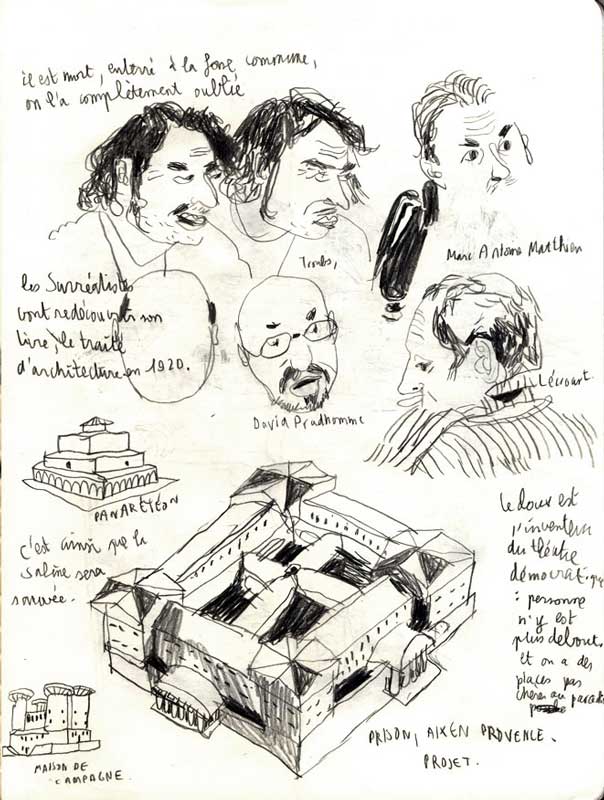 il est mort, enterré à la fosse commune,
on l'a complètement oublié
Troubs,
Marc Antoine Matthieu
les Surréalistes
vont redécouvrir son
livre, le traité
d'architecture en 1920.
David Prudhomme
Lécroart.
PANARÉTÉON
c'est ainsi que la
Saline sera
sauvée.
Ledoux est
l'inventeur
du théâtre
démocratique
: personne
n'y est
plus debout,
et on a des
places pas
chères au paradis
MAISON DE
CAMPAGNE.
PRISON, AIX EN PROVENCE.
PROJET.